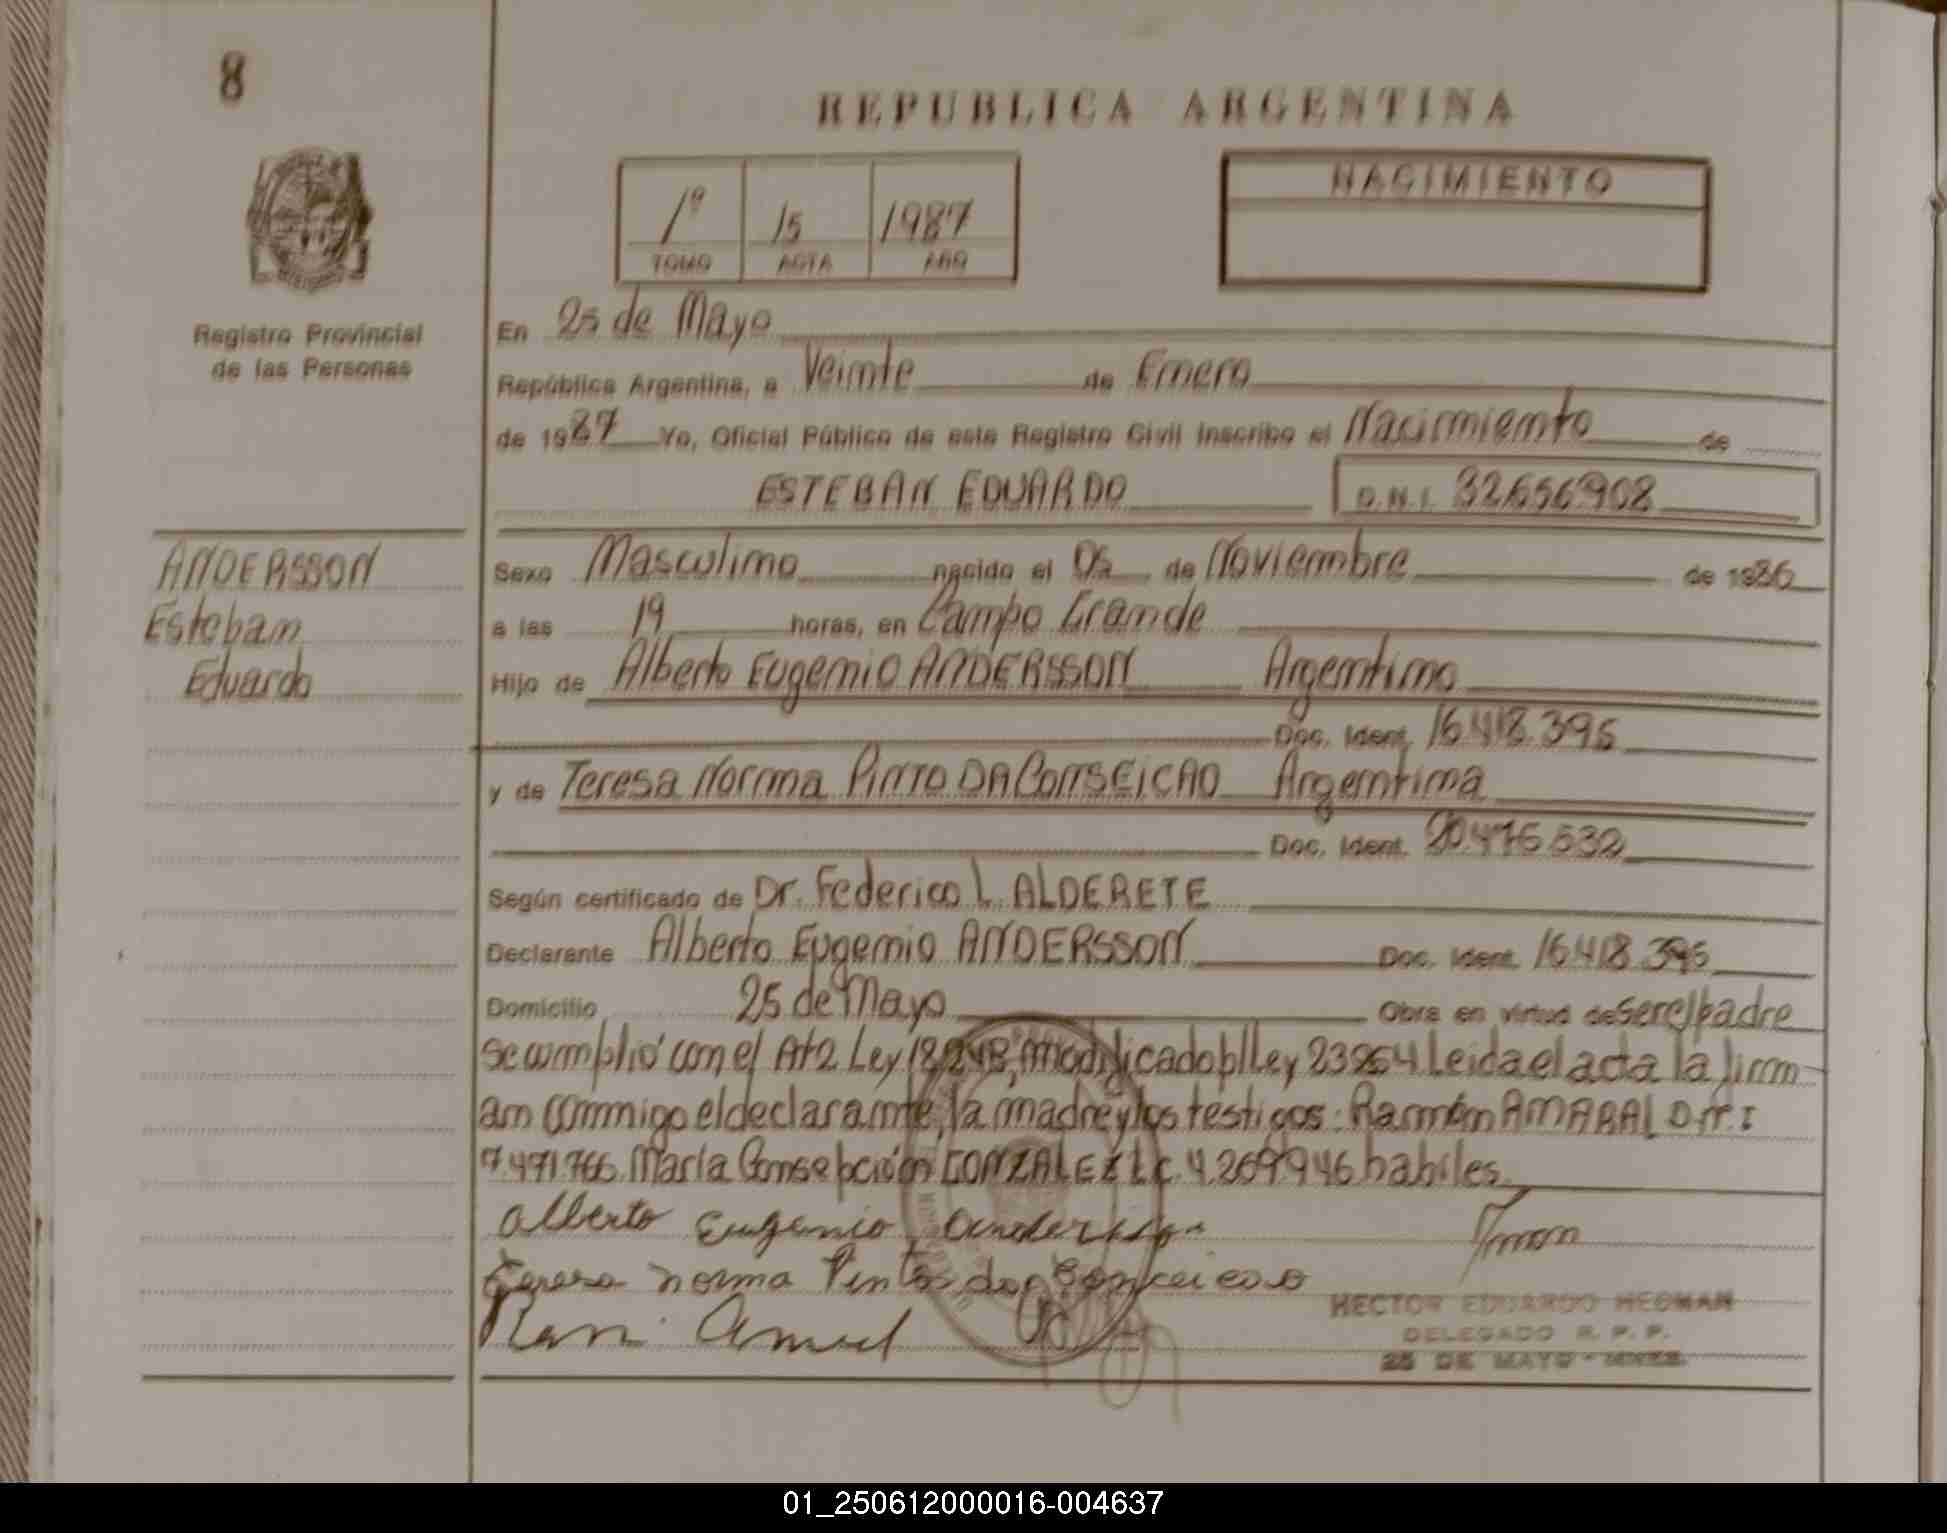 8
REPUBLICA ARGENTINA
1º 15 1987
TOMO ACTA AÑO
NACIMIENTO
Registro Provincial
de las Personas
En 25 de Mayo
República Argentina, a Veinte de Enero
de 1987 Yo, Oficial Público de este Registro Civil inscribo el Nacimiento de
ESTEBAN EDUARDO D.N.I. 32.656.908
ANDERSSON
Esteban
Eduardo
Sexo Masculino nacido el 05 de Noviembre de 1986
a las 19 horas, en Campo Grande
Hijo de Alberto Eugenio ANDERSSON Argentino
Doc. Ident. 16.418.395
y de Teresa Norma PINTO DA CONSEICAO Argentina
Doc. Ident. 20.475.532
Según certificado de Dr. Federico L. ALDERETE
Declarante Alberto Eugenio ANDERSSON Doc. Ident. 16.418.395
Domicilio 25 de Mayo Obra en virtud de ser el padre
se cumplió con el At 2 Ley 18.248, modificado p/ Ley 23264 Leida el acta la firm
an conmigo el declarante, la madre y los testigos: Ramón AMARAL D.N.I
7.471.766. María Consepción GONZALEZ L.C. 4.269.946 habiles.
Alberto Eugenio Andersson
Teresa norma Pinto da Conceicao
HECTOR EDUARDO HEDMAN
DELEGADO R. P. P.
25 DE MAYO - MNES.
01_250612000016-004637